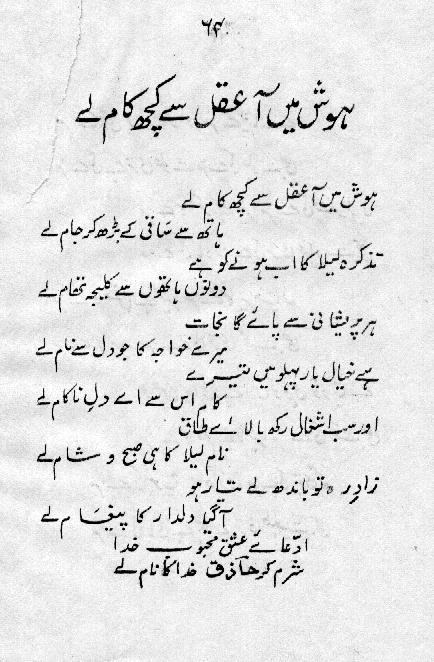 ۶۴
ہوش میں آ عقل سے کچھ کام لے
ہوش میں آ عقل سے کچھ کام لے
ہاتھ سے ساقی کے بڑھ کر جام لے
تذکرہ لیلا کا اب ہونے کو ہے
دونوں ہاتھوں سے کلیجہ تھام لے
ہر پریشانی سے پائے گا نجات
میرے خواجہ کا جو دل سے نام لے
ہے خیال یار پہلو میں تیرے
کام اس سے اے دلِ ناکام لے
اور سب اشغال رکھ بالائے طاق
نام لیلا کا ہی صبح و شام لے
زادِ رہ تو باندھ لے تیار ہو
آگیا دلدار کا پیغام لے
ادّعائے عشق محبوب خدا
شرم کر حاذق خدا کا نام لے